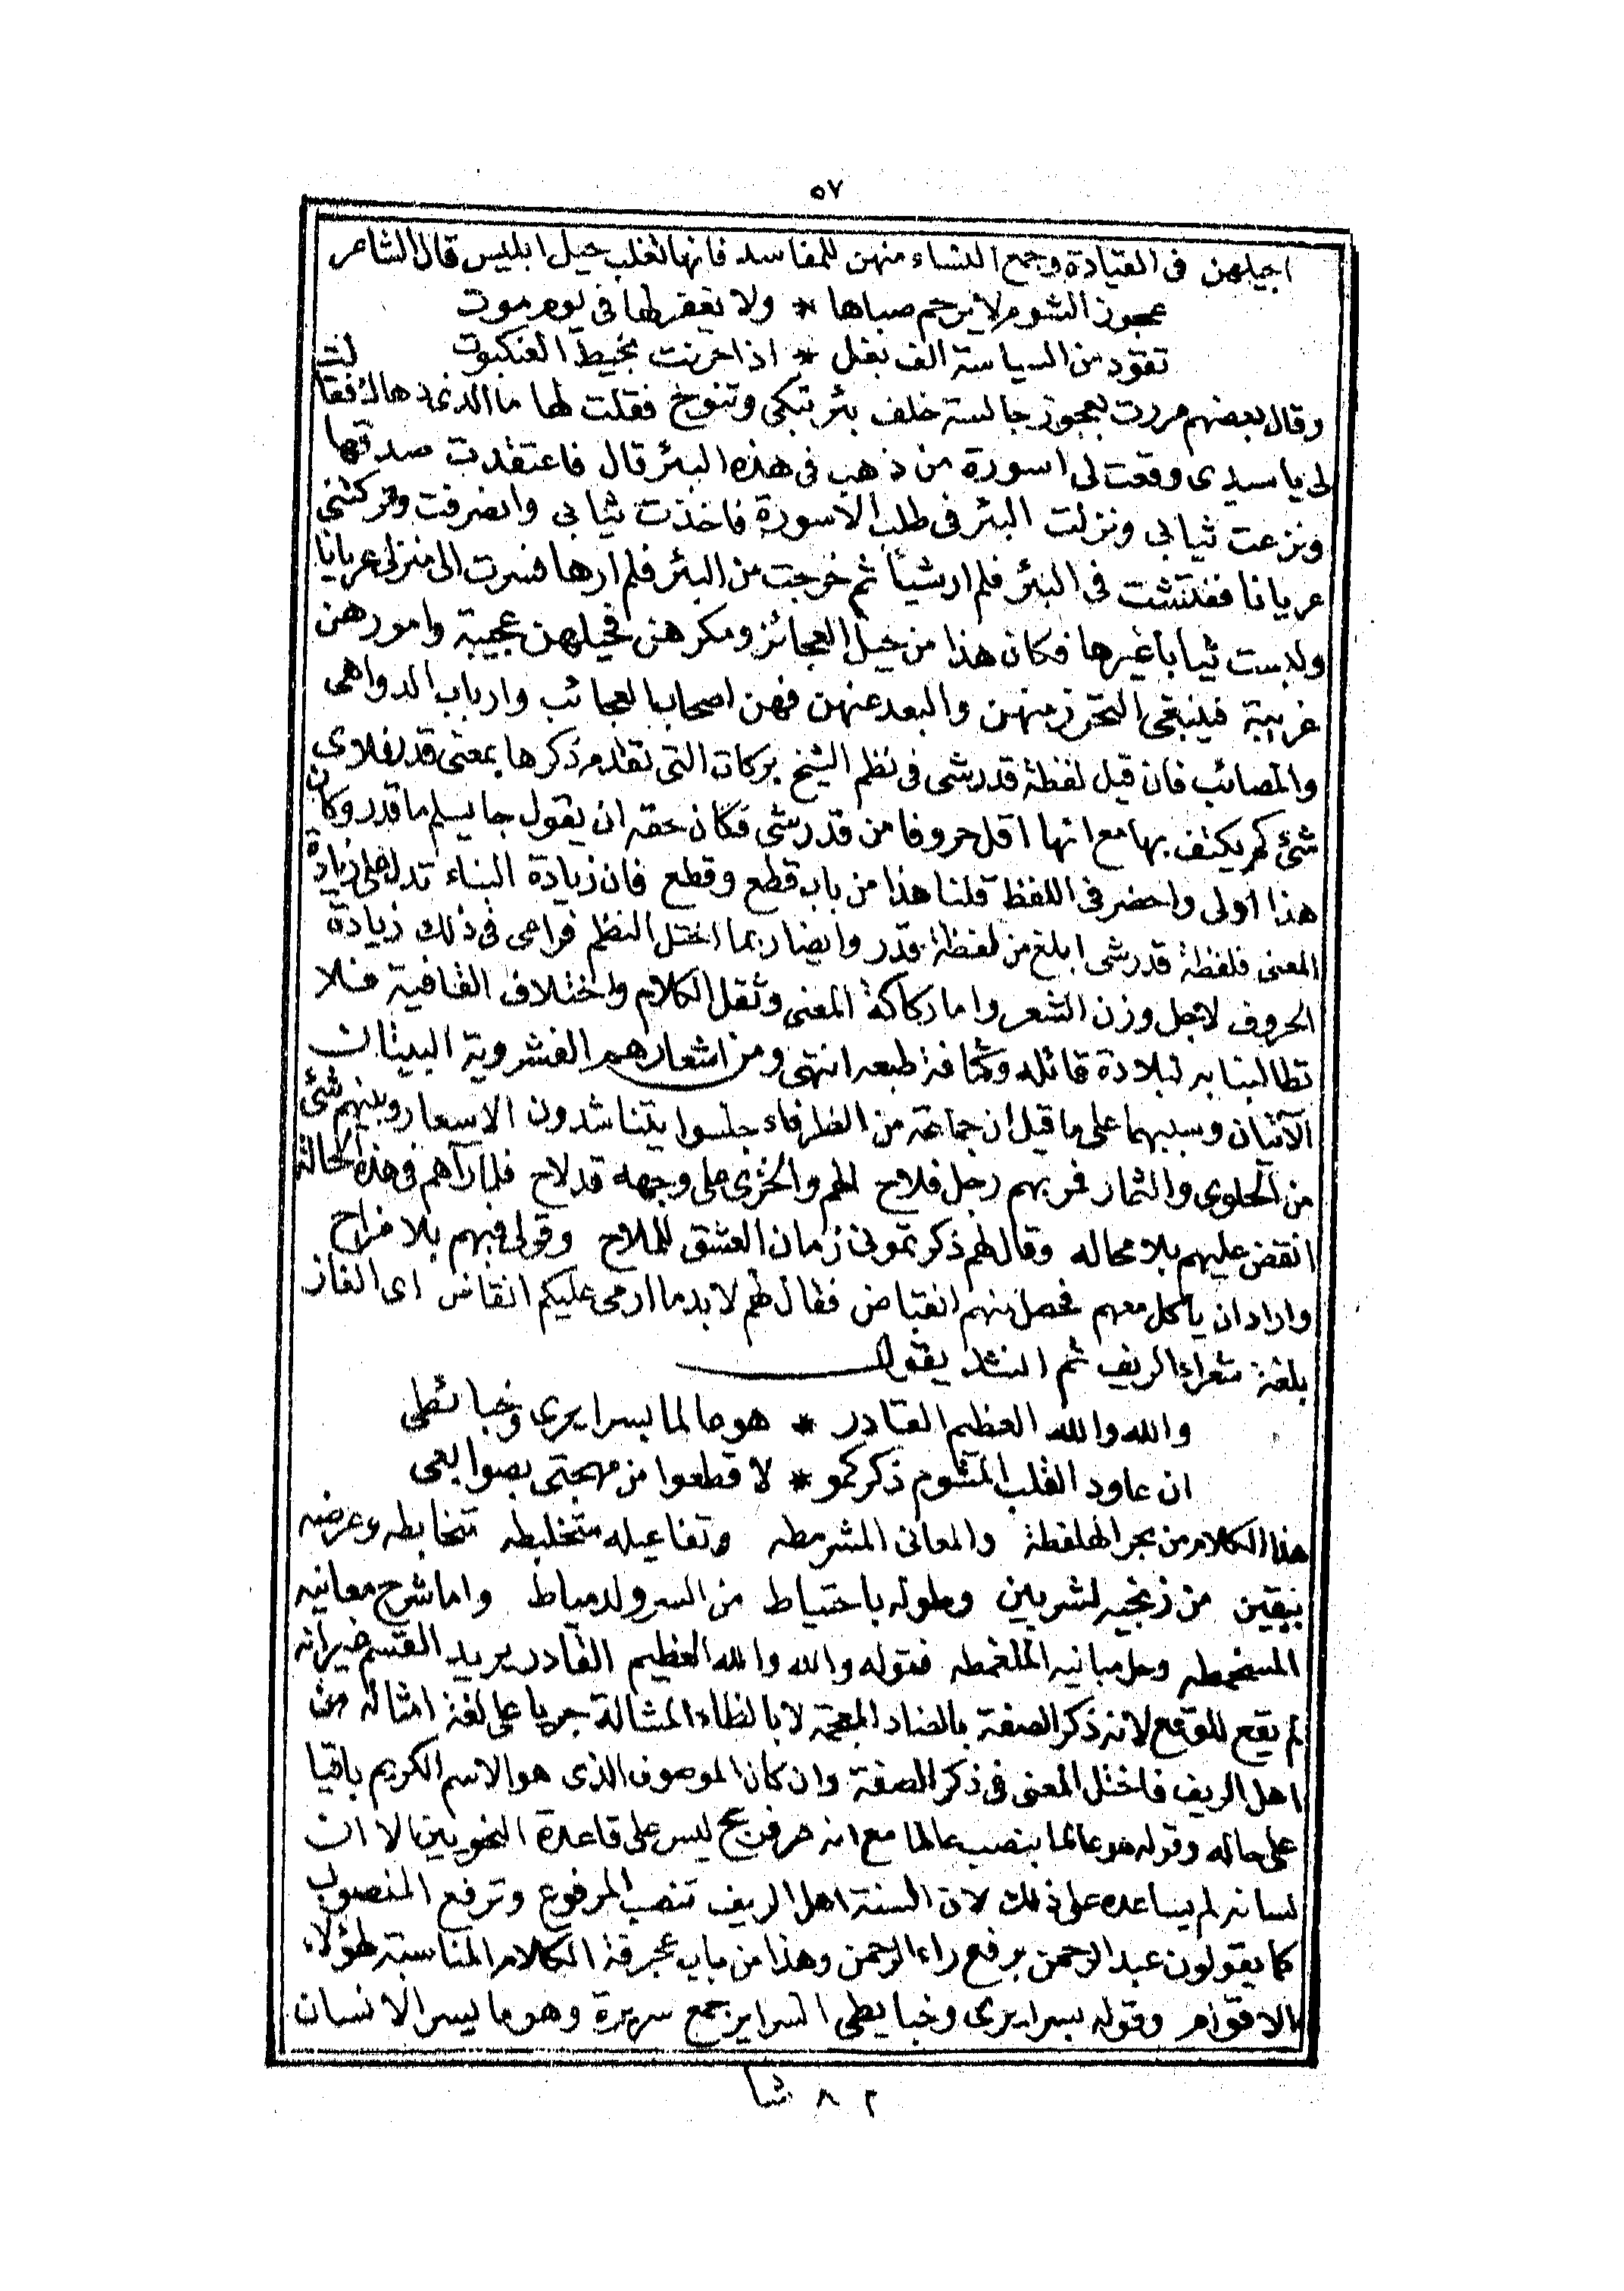 ٥٧
احيلهن فى القيادة وجمع النساء منهن للمفاسد فانها تغلب حيل ابليس قال الشاعر
عجوز الشوم لا يرحم صباها * ولا يغفر لها فى يوم موت
تقود من السياسة الف بغل * اذا حرنت بخيط العنكبوت
وقال بعضهم مررت بعجوز جالسة خلف بئر تبكى وتنوح فقلت لها ما الذى دهاك فقالت
لى يا سيدى وقعت لى اسورة من ذهب فى هذه البئر قال فاعتقدت صدقها
ونزعت ثيابى ونزلت البئر فى طلب الاسورة فاخذت ثيابى وانصرفت وتركتنى
عريانا ففتشت فى البئر فلم ار شيأ ثم خرجت من البئر فلم ارها فسرت الى منزلى عريانا
ولبست ثيابا غيرها فكان هذا من حيل العجائز ومكرهن فحيلهن عجيبة وامورهن
غريبة فينبغى التحرز منهن والبعد عنهن فهن اصحاب العجائب وارباب الدواهى
والمصائب فان قيل لفظة قدرشى فى نظم الشيخ بركات التى تقدم ذكرها بمعنى قدر فلاى
شئ لم يكتف بها مع انها اقل حروفا من قدرشى فكان حقه ان يقول جا يسلم ما قدر وكان
هذا اولى واخصر فى اللفظ قلنا هذا من باب قطع وقطع فان زيادة البناء تدل على زيادة
المعنى فلفظة قدرشى ابلغ من لفظة قدر وايضا ربما اختل النظم فراعى فى ذلك زيادة
الحروف لاجل وزن الشعر واما ركاكة المعنى وثقل الكلام واختلاف القافية فلا
تطالبنا به لبلادة قائله وكثافة طبعه انتهى ومن اشعارهم الفشروية البيتان
الآتيان وسببهما على ما قيل ان جماعة من الظرفاء جلسوا يتناشدون الاسعار وبينهم شئ
من الحلوى والثمار فمر بهم رجل فلاح لهم والخرى على وجهه قد لاح فلما رآهم فى هذه الحالة
انقض عليهم بلا محاله وقال لهم ذكرتمونى زمان العشق للملاح وقولى فيهم بلا مزاح
واراد ان ياكل معهم فحصل منهم انقباض فقال لهم لا بد ما ارمى عليكم انقاض اى الغاز
بلغة شعراء الريف ثم انشد يقول
والله والله العضيم القادر * هو عالما بسرايرى وخبائطى
ان عاود القلب المشوم ذكركمو * لا قطعوا من مهجتى بصوابعى
هذا الكلام من بحر الهلفطة والمعانى المشرمطه وتفاعيله متخلبطه متخابطه وعرضه
بيقين من زنجيه لشربين وطوله باحتياط من السرو لدمياط واما شرح معانيه
المسخمطه وحل مبانيه الملغمطه فقوله والله والله العظيم القادر يريد القسم غير انه
لم يقع الموقع لانه ذكر الصفة بالضاد المعجمة لا بالظاء المشالة جريا على لغة امثاله من
اهل الريف فاختل المعنى فى ذكر الصفة وان كان الموصوف الذى هو الاسم الكريم باقيا
على حاله وقوله هو عالما بنصب عالما مع انه ليس على قاعدة النحويين الا ان
لسانه لم يساعده على ذلك لان السنة اهل الريف تنصب المرفوع وترفع المنصوب
كما يقولون عبد الرحمن برفع راء الرحمن وهذا من باب عجرفة الكلام المناسبة لهؤلاء
الاقوام وقوله بسرايرى وخبايطى السراير جمع سريرة وهو ما يسر الانسان
٨ شا ٢